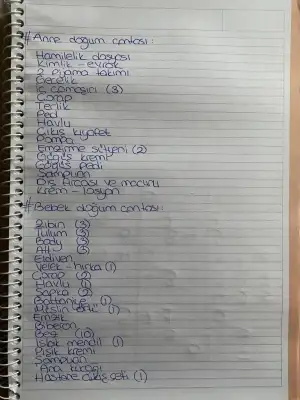 # Anne doğum çantası:
Hamilelik dosyası
Kimlik - evrak
2 pijama takımı
Gecelik
İç çamaşırı (3)
Çorap
Terlik
Ped
Havlu
Çıkış kıyafet
Pompa
Emzirme sütyeni (2)
Göğüs kremi
Göğüs pedi
Şampuan
Diş fırçası ve macunu
Krem - losyon
# Bebek doğum çantası:
Zıbın (3)
Tulum (3)
Body (3)
Alt (3)
Eldiven
Yelek - hırka (1)
Çorap (2)
Havlu (1)
Şapka (2)
Battaniye (1)
Müslin örtü (1)
Emzik
Biberon
Bez (10)
Islak mendil (1)
Pişik kremi
Şampuan
Ana kucağı
Hastane çıkış seti (1)